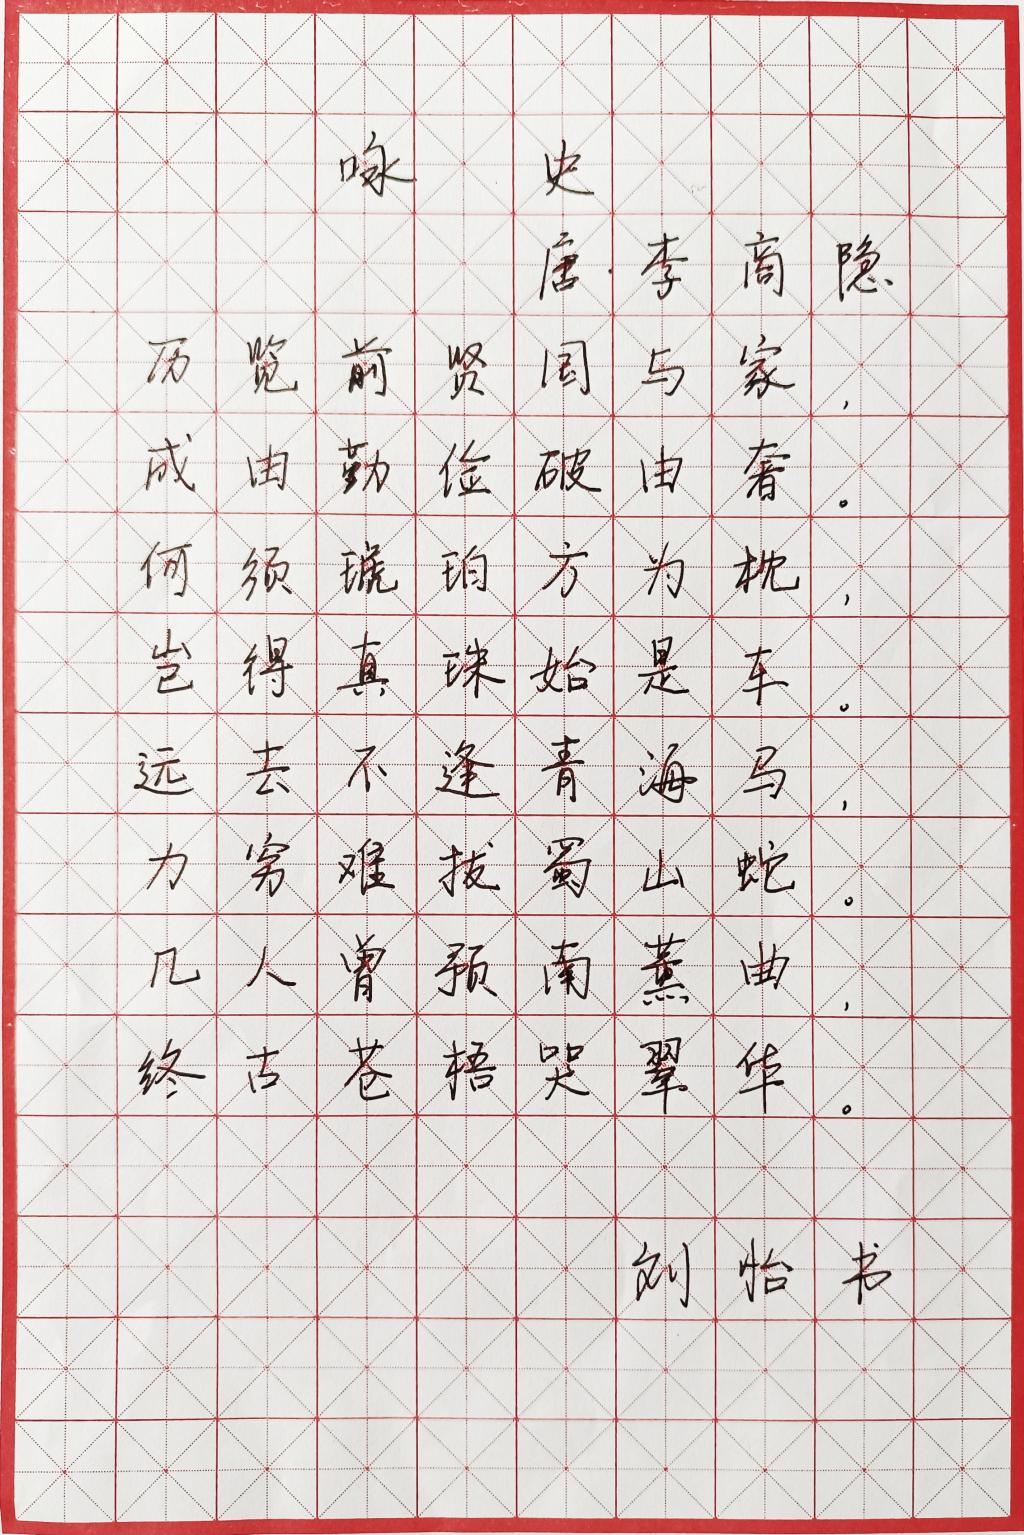 咏史
唐·李商隐
历览前贤国与家，
成由勤俭破由奢。
何须琥珀方为枕，
岂得真珠始是车。
远去不逢青海马，
力穷难拔蜀山蛇。
几人曾预南薰曲，
终古苍梧哭翠华。
刘怡书